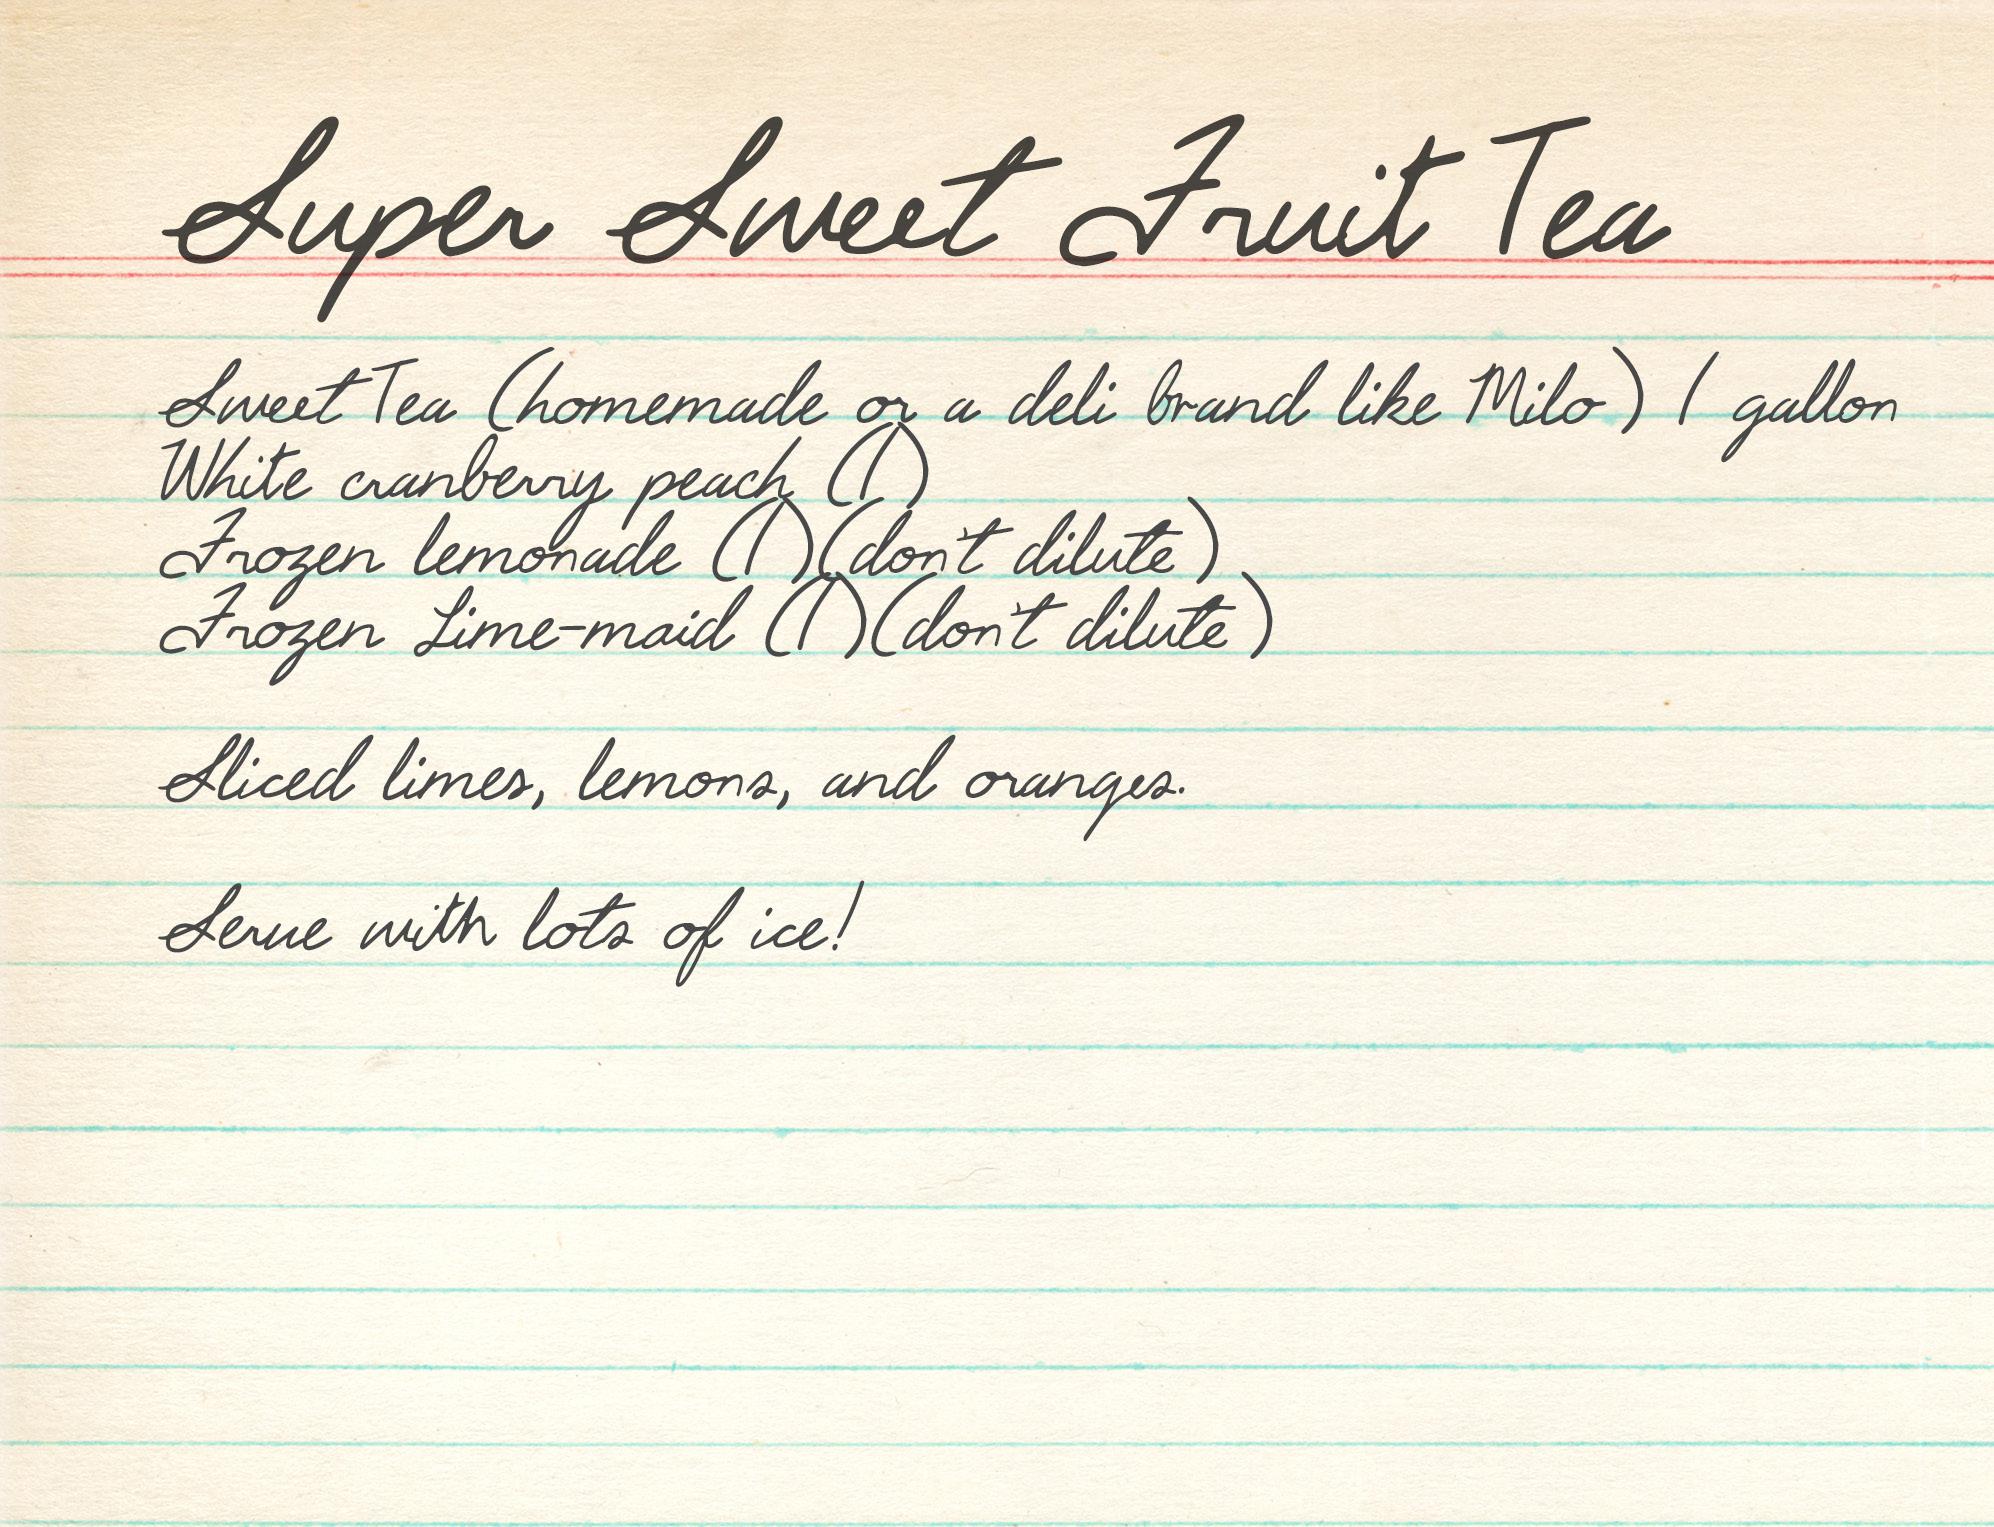 Super Sweet Fruit Tea
Sweet Tea (homemade or a deli brand like Milo) 1 gallon
White cranberry peach (1)
Frozen lemonade (1)(don't dilute)
Frozen Lime-maid (1)(don't dilute)
Sliced limes, lemons, and oranges.
Serve with lots of ice!